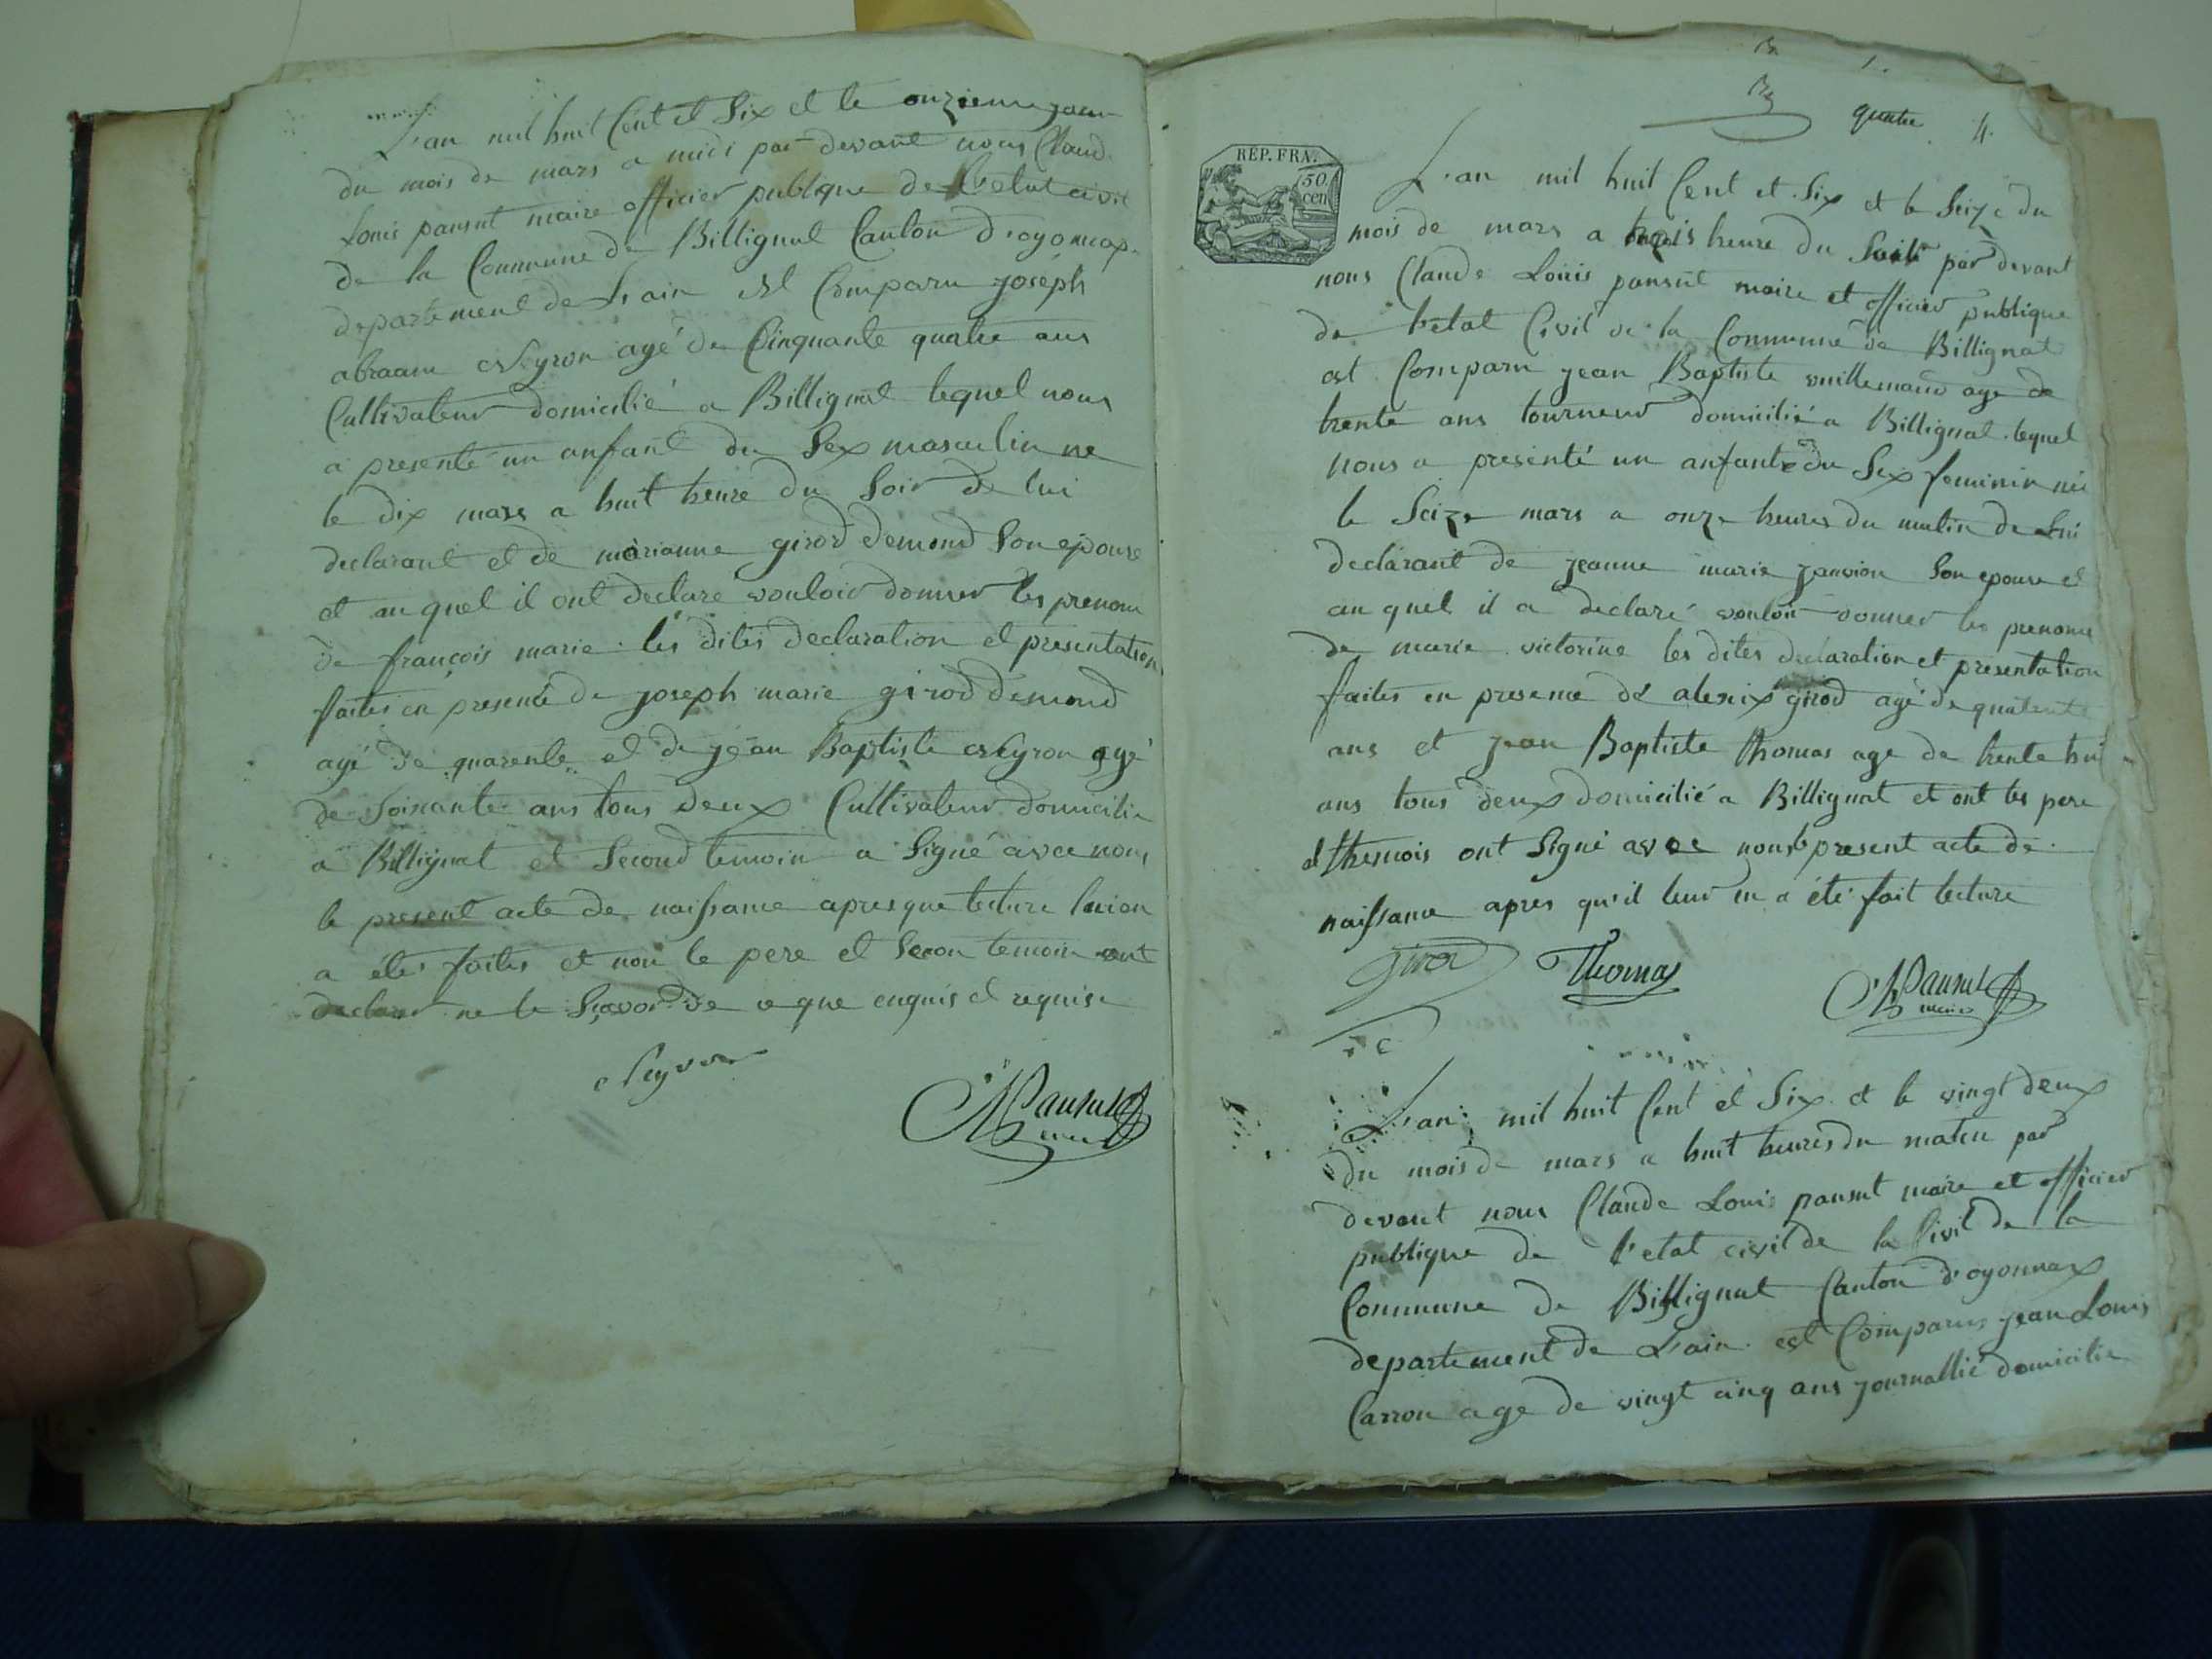 L'an mil huit Cent et Six et le onzieme jour
du mois de mars a midi par devant nous Claude
Louis pansut maire officier publique de L'etat civil
de la Commune de Billignat Canton d'oyonnax
departement de L'ain est Comparu joseph
abraam Neyron agé de Cinquante quatre ans
Cultivateur domicilié a Billignat lequel nous
a presenté un anfant du Sex masculin ne
le dix mars a huit heure du Soir de lui
declarant et de marianne girod demond Son epouse
et au quel il ont declare vouloir donner les prenom
de françois marie les dites declaration et presentation
faites en presence de joseph marie girod demond
agé de quarente et de jean Baptiste Neyron agé
de Soixante ans tous deux Cultivateur domicilie
a Billignat et Second temoin a Signé avec nous
le present acte de naissance apres que lecture
a étés faites et non le pere et Secon temoin ont
declarer ne le Sçavoir de ce que enquis et requis
Neyron
Pansut
maire
quatre 4.
REP. FRA.
50.
cen
L'an mil huit Cent et Six et le Seize du
mois de mars a trois heure du Soir par devant
nous Claude Louis pansut maire et officier publique
de l'etat Civil de la Commune de Billignat
est Comparu jean Baptiste vuillemard age de
trente ans tourneur domicilié a Billignat lequel
nous a presenté un anfant du Sex feminin née
le Seize mars a onze heures du matin de Lui
declarant de jeanne marie janvion Son epouse et
au quel il a declaré vouloir donner les prenoms
de marie victorine les dites declaration et presentation
faites en presence de alexix girod agé de
ans et jean Baptiste thomas age de trente hui
ans tous deux domicilié a Billignat et ont les pere
et themois ont Signé avec nous le present acte de
naissance apres qu'il leur en a été fait lecture
Girod Thomas Pansut
maire
L'an mil huit Cent et Six et le vingt deux
du mois de mars a huit heures du matin par
devant nous Claude Louis pansut maire et officier
publique de l'etat civil de la Civil de la
Commune de Billignat Canton d'oyonnax
departement de L'ain est Comparus jean Louis
Carron age de vingt cinq ans journallié domicilie